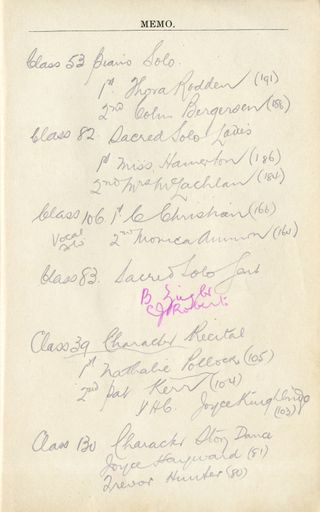 MEMO.
Class 53 Piano Solo.
1st Thora Rodden (191)
2nd Colin Bergersen (188)
Class 82 Sacred Solo Ladies
1st Miss Hamerton (186)
2nd Mrs McLachlan (184)
Class 106 1st C Christian (166)
Vocal
2nd Monica (164)
Class 83 Sacred Solo
B
C J Roberts
Class 39 Character Recital
1st Nathalie Pollock (105)
2nd Pat Kerr (104)
V.H.C. Joyce
(103)
Class 130 Character Step Dance
Joyce Hayward (81)
Trevor Hunter (80)